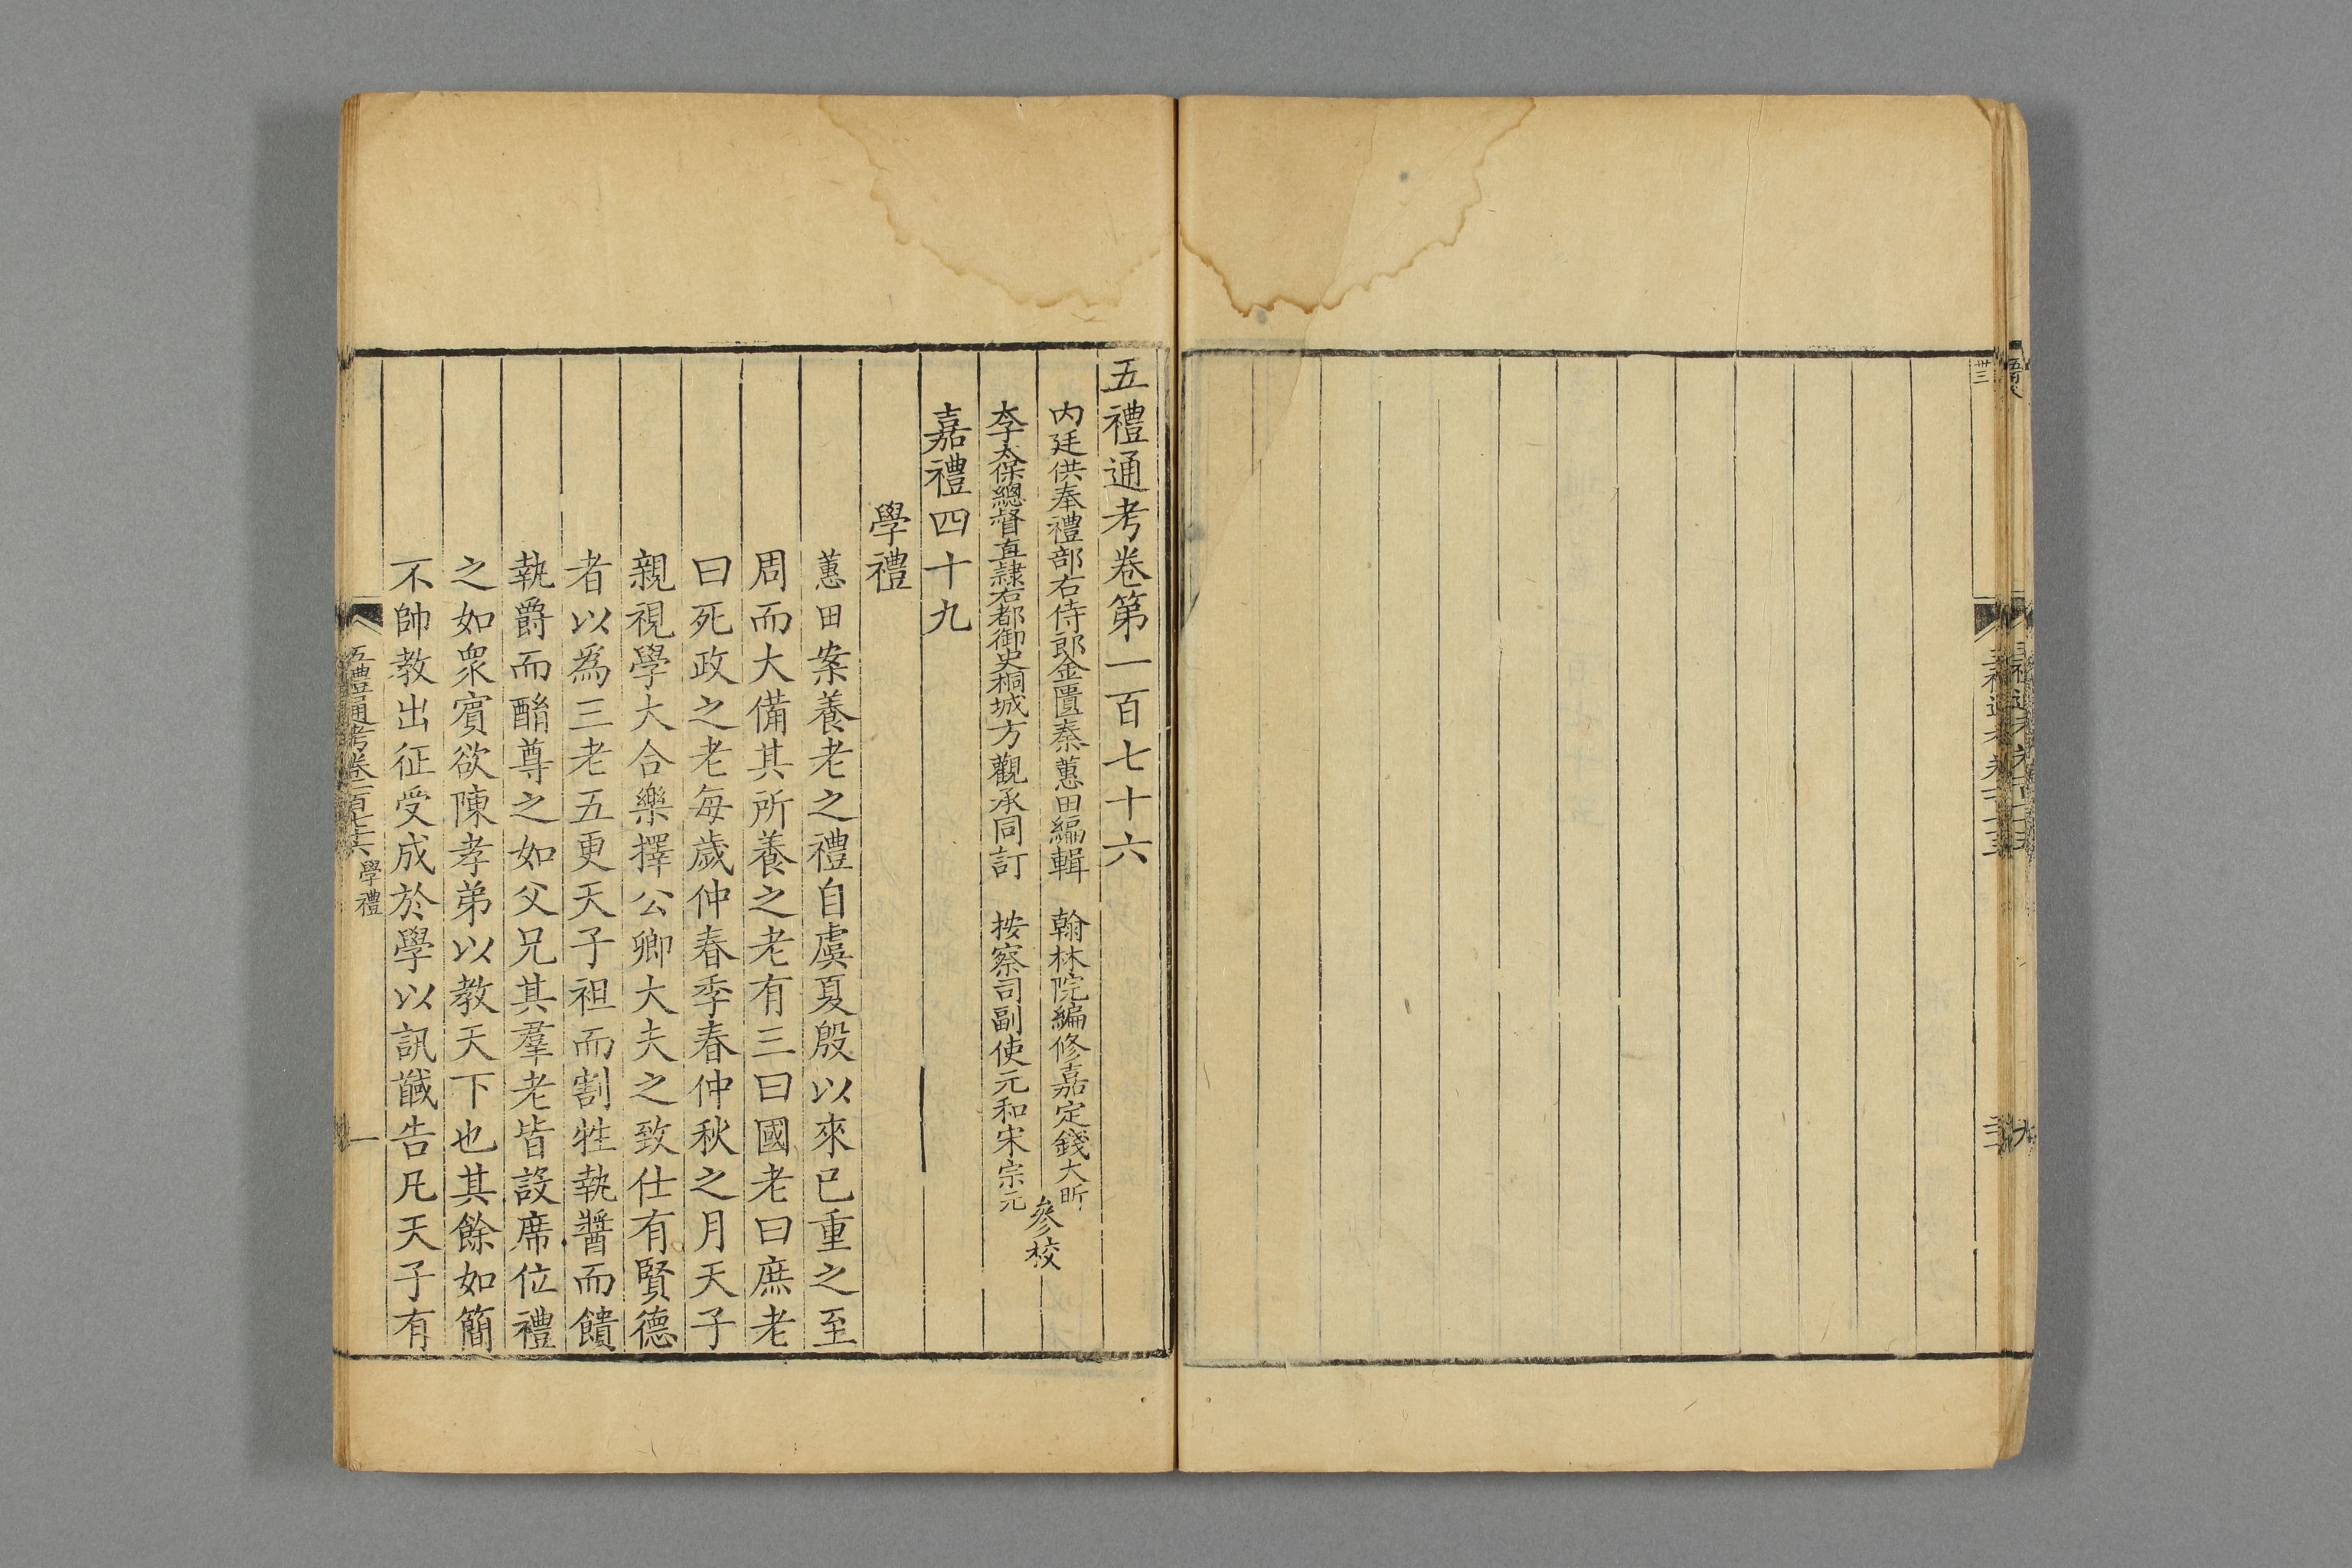 五禮通考卷第一百七十六
内廷供奉禮部右侍郎金匱秦蕙田編輯　翰林院編修嘉定錢大昕
李太保總督直隷右都御史桐城方觀承同訂　按察司副使元和宋宗元
參校
嘉禮四十九
學禮
蕙田案養老之禮自虞夏殷以來已重之至
周而大備其所養之老有三曰國老曰庶老
曰死政之老每歲仲春季春仲秋之月天子
親視學大合樂擇公卿大夫之致仕有賢德
者以爲三老五更天子袒而割牲執醬而饋
執爵而酳尊之如父兄其羣老皆設席位禮
之如衆賓欲陳孝弟以教天下也其餘如簡
不帥教出征受成於學以訊馘告凡天子有
五禮通考卷一百七十六　學禮
一